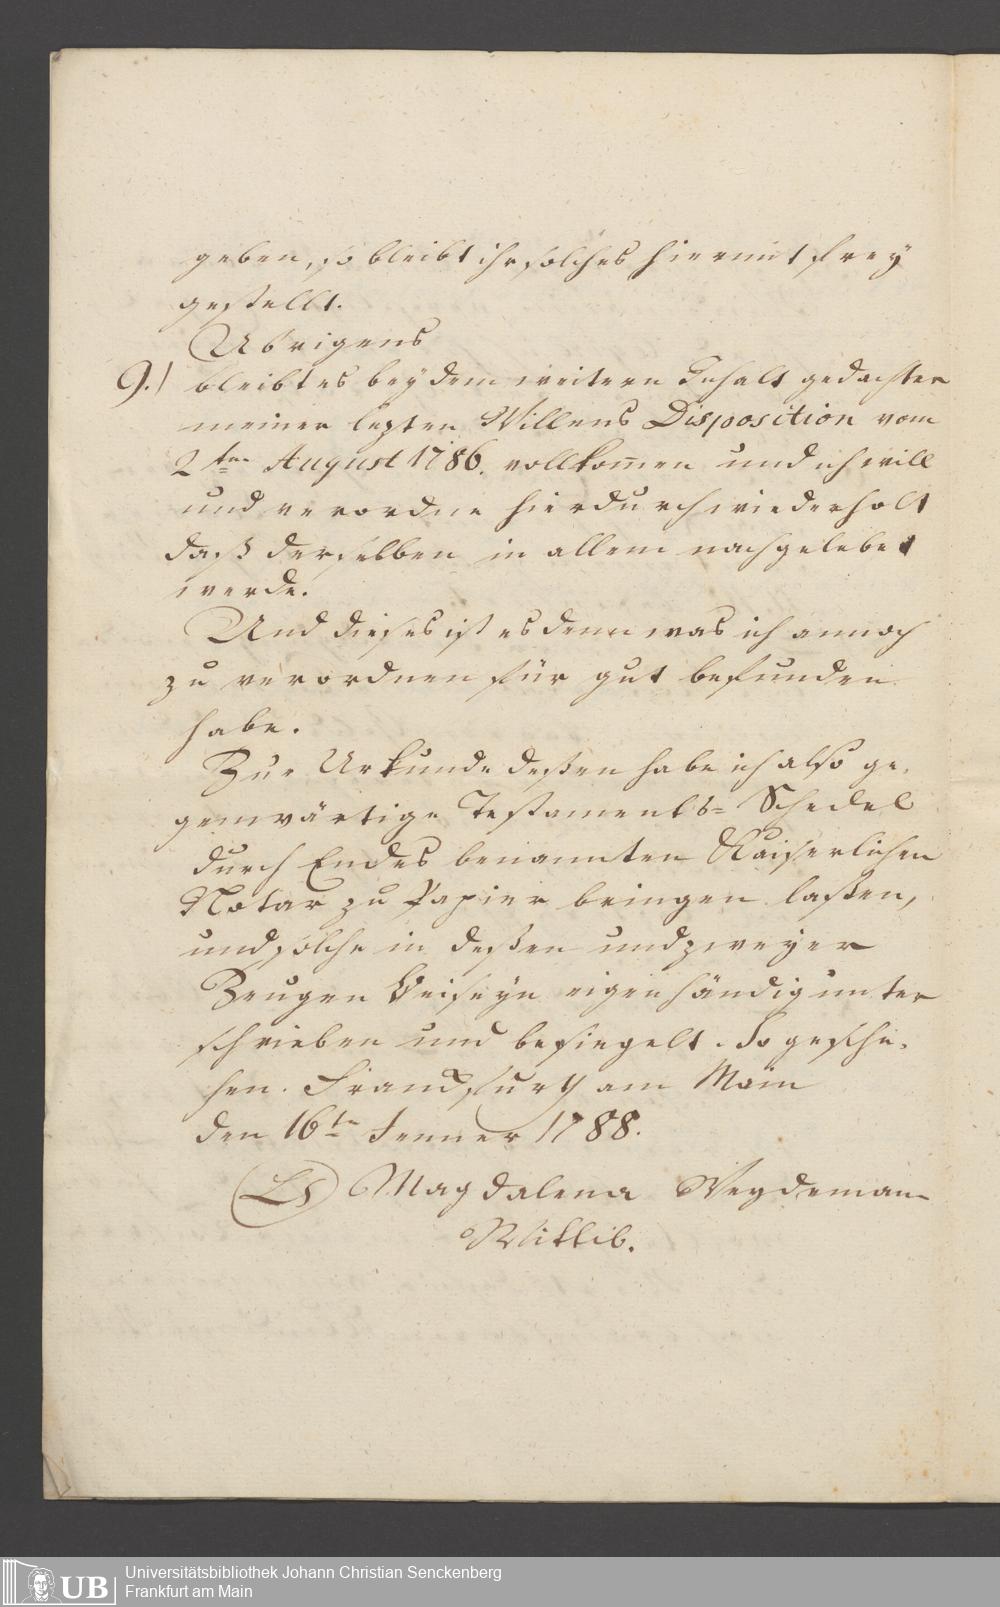 geben, so bleibt ihr solches hiermit frey
gestellt.
Ubrigens
9.) bleibt es bey dem weitern Inhalt gedachter
meiner lezten Willens Disposition vom
2ten August 1786. vollkom̄en und ich will
und verordne hierdurch wiederholt
daß derselben in allem nachgelebet
werde.
Und dieses ist es denn was ich annoch
zu verordnen für gut befunden
habe.
Zur Urkunde deßen habe ich also ge-
genwärtige Testaments- Schedel
durch Endes benannten Kaiserlichen
Notar zu Papier bringen laßen,
und solche in deßen und zweyer
Zeugen Beiseyn eigenhändig unter
schrieben und besiegelt. So gesche-
hen. Franckfurth am Main
den 16te Jenner 1788.
LS Magdalena Weydemann
Wittib.
Universitätsbibliothek Johann Christian Senckenberg
UB Frankfurt am Main